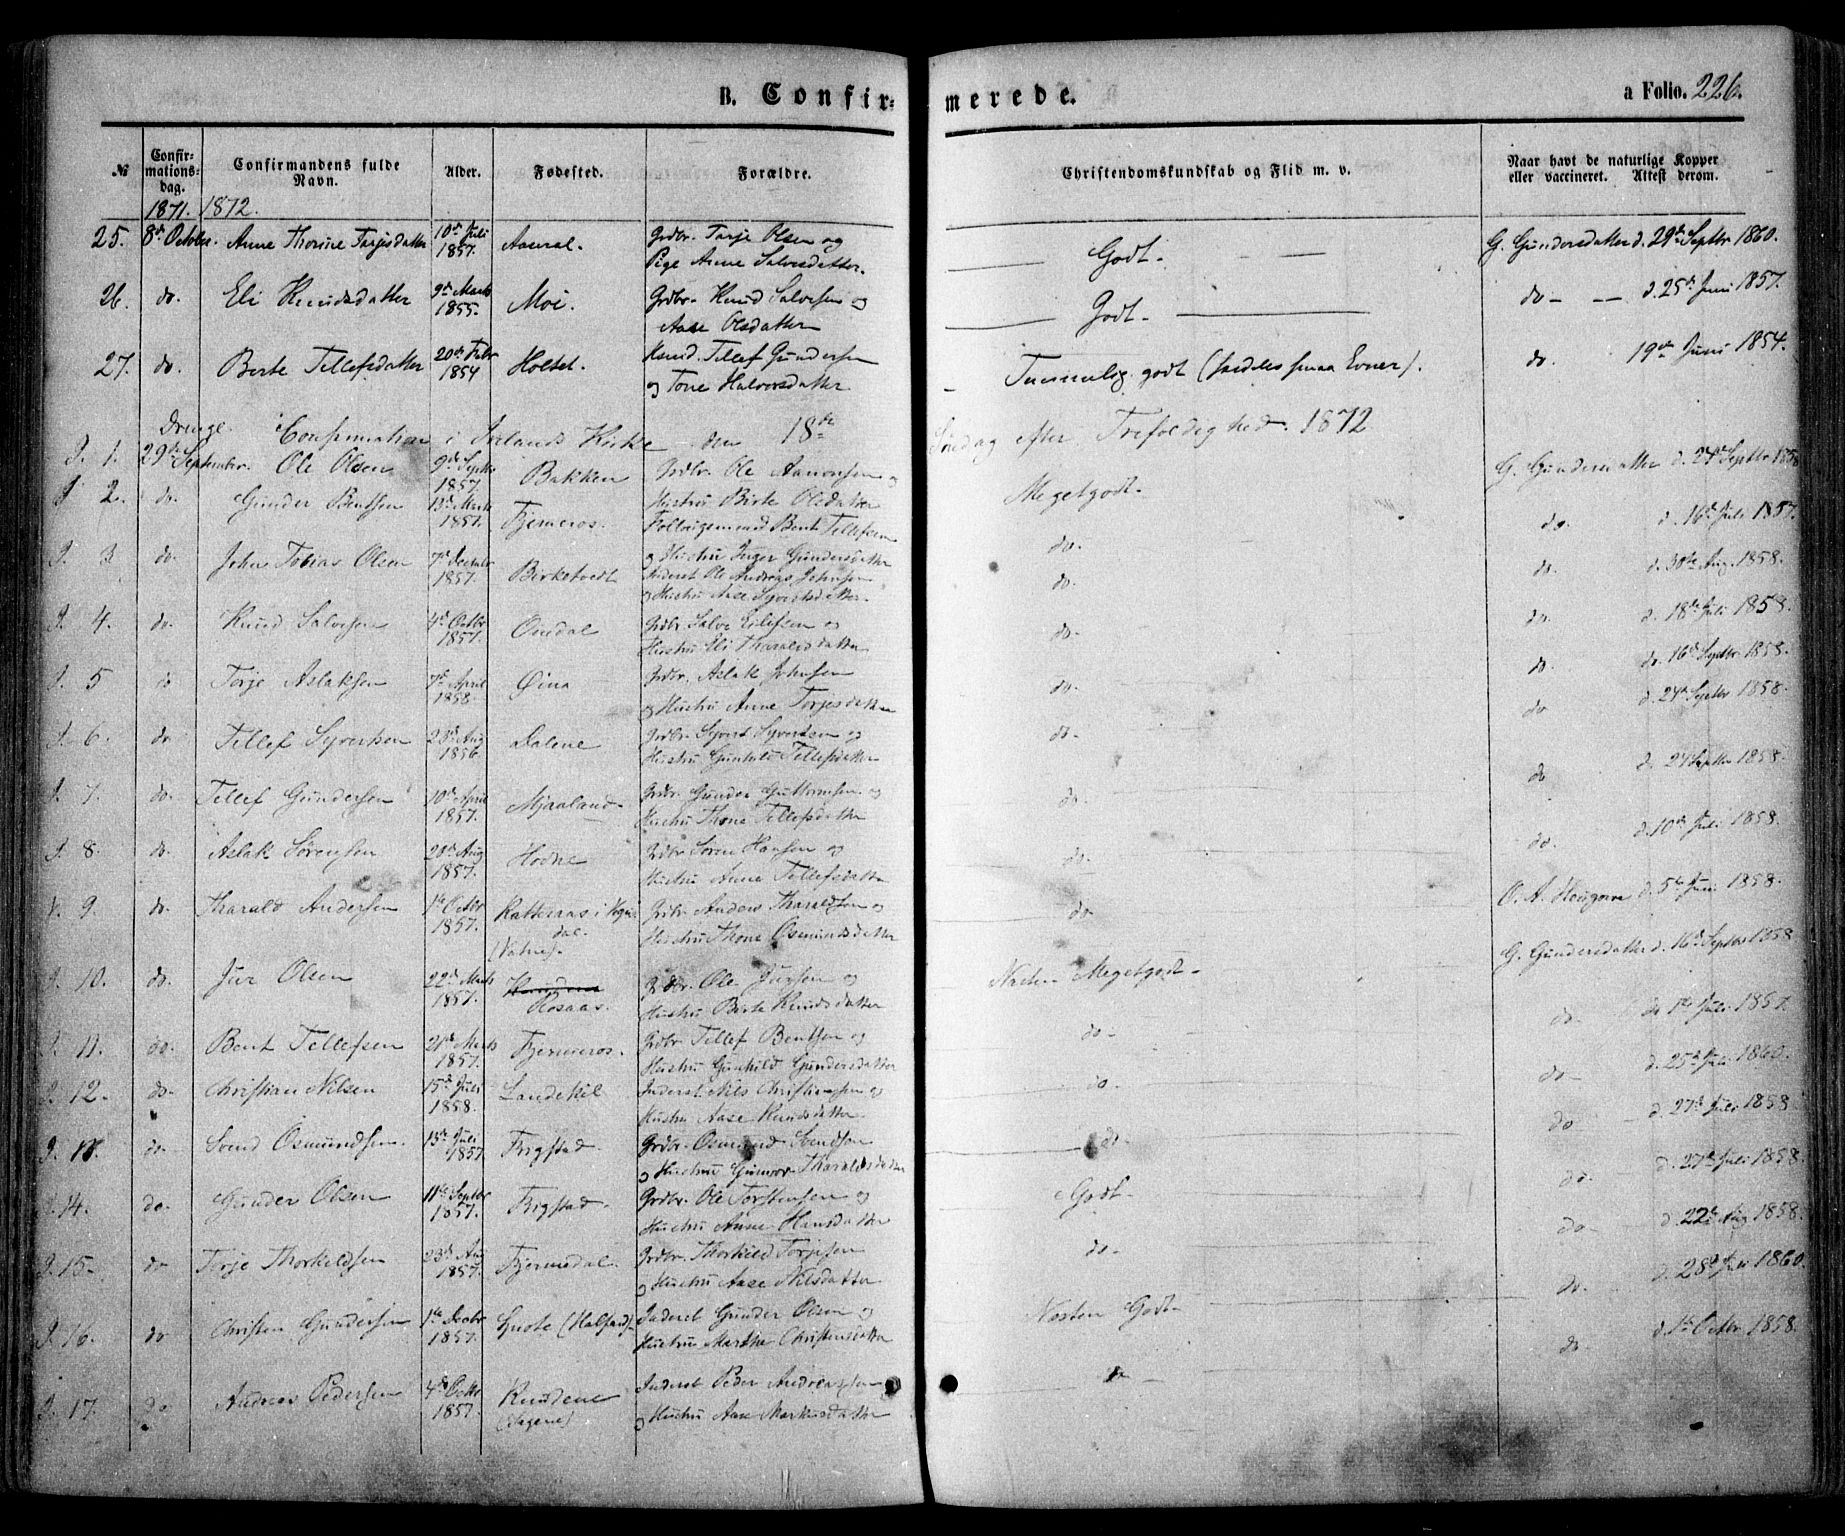 B. Confir-
merede.
a Folio. 226.
№ Confir-mations-dag. Confirmandens fulde Navn. Alder. Fødested. Forældre. Christendomskundskab og Flid m. v. Naar havt de naturlige Kopper eller vaccineret. Attest derom.
1871. 1872.
25. 8de October. Anne Thorine Tarjesdatter 10de Juli 1857. Aasral. Grdbr. Tarje Olsen og Pige Anne Salvesdatter. Godt. G. Gundersdatter d. 29de Septbr 1860.
26. do. Eli Knudsdatter 9de Marts 1855. Moi. Grdbr. Knud Salvesen og Aase Olsdatter Godt. do d. 25de Juni 1857.
27. do. Berte Tellefsdatter 20de Febr 1854 Holtet. Tellef Gundersen og Tone Halvorsdatter Temmelig godt (særdeles smaa Evner). do. 19de Juni 1854.
Drenge. Confirmation i Kirke den 18de Søndag efter Trefoldighed. 1872
1. 29de September. Ole Olsen 9de Septbr 1857 Bakken Grdbr. Ole Aanonsen og Hustru Birte Olsdatter Megetgodt. G. Gundersdatter d. Septbr 1858
2. do. Gunder Bentsen 13de Marts 1857. Fjermeros. Bent Tellefsen og Hustru Inger Gundersdatter do. do. d. 16de Juli 1857.
3 do. John Tobias Olsen 7de Decbr 1857. Birketvedt Inderst Ole Andreas Johnsen og Hustru Aase Syvertsdatter. do. do. d. 30te Aug. 1858.
4. do. Knud Salvesen 4de Octbr 1857. Omdal Grdbr. Salve Eilefsen og Hustru Eli Tharaldsdatter do. do. d. 18de Juli 1858.
5 do Torje Aslaksen 7de April 1858. Øina Grdbr. Aslak Johnsen og Hustru Anne Torjesdatter do. do. d. 16de Septbr 1858.
6. do Tellef Syvertsen 23de Aug 1856. Dalene Grdbr. Syvert Syvertsen og Hustru Gunhild Tellefsdatter do. do d. 24de Septbr 1858.
7. do. Tellef Gundersen 10de April 1857. Mjaaland Grdbr. Gunder Guttormsen og Hustru Thone Tellefsdatter do. do d. 24 Septbr 1858.
8. do. Aslak Sørensen 20de Aug 1857. Hodne Grdbr. Søren Hansen og Hustru Anne Tellefsdatter do. do. d. 10de Juli 1858.
9. do. Tharald Andersen 1ste Octbr 1857. Katteraas i Vegusdal. (Vatne). Grdbr. Anders Tharaldsen og Hustru Thone Osmundsdatter do O. A. Hougene d. 5te Juni 1858.
10. do. Jur Olsen 22de Marts 1857. Rosaas. Grdbr. Ole Jursen og Hustru Birte Knudsdatter Næsten Megetgodt. G. Gundersdatter d. 16de Septbr 1858
11. do. Bent Tellefsen 21de Marts 1857. Fjermeros. Grdbr. Tellef Bentsen og Hustru Gunhild Gundersdatter do. do. d. 1ste Juli 1857.
12. do. Christian Nilsen 15de Juli 1858. Landekil Inderst Nils Christiansen og Hustru Aase Knudsdatter do. do d. 25de Juni 1860.
do. Svend Osmundsen. 13de Juli 1857 Frigstad. Grdbr. Osmund Svendsen og Hustru Gunvor Tharaldsdatter do. do d. 27de Juli 1858
14. do. Gunder Olsen 11te Septbr 1857. Frigstad. Grdbr. Ole Torstensen og Hustru Anne Hansdatter Godt. do. d. 27de Juli 1858.
15. do Torje Thorkildsen 23de Aug 1857. Fjermedal. Grdbr. Thorkild Torjesen og Hustru Aase Nilsdatter do. do d. 22de Aug 1858.
16. do Christen Gundersen 1ste Decbr 1857. (Halfard). Inderst Gunder Olsen og Hustru Marthe Christensdatter Næsten Godt. do. d. 28de Juli 1860.
17. do Andreas Pedersen 4de Octbr 1857. Knudene (Hagene) Inderst Peder Andreassen og Hustru Aase Markusdatter do. do d. 1ste Octbr 1858.